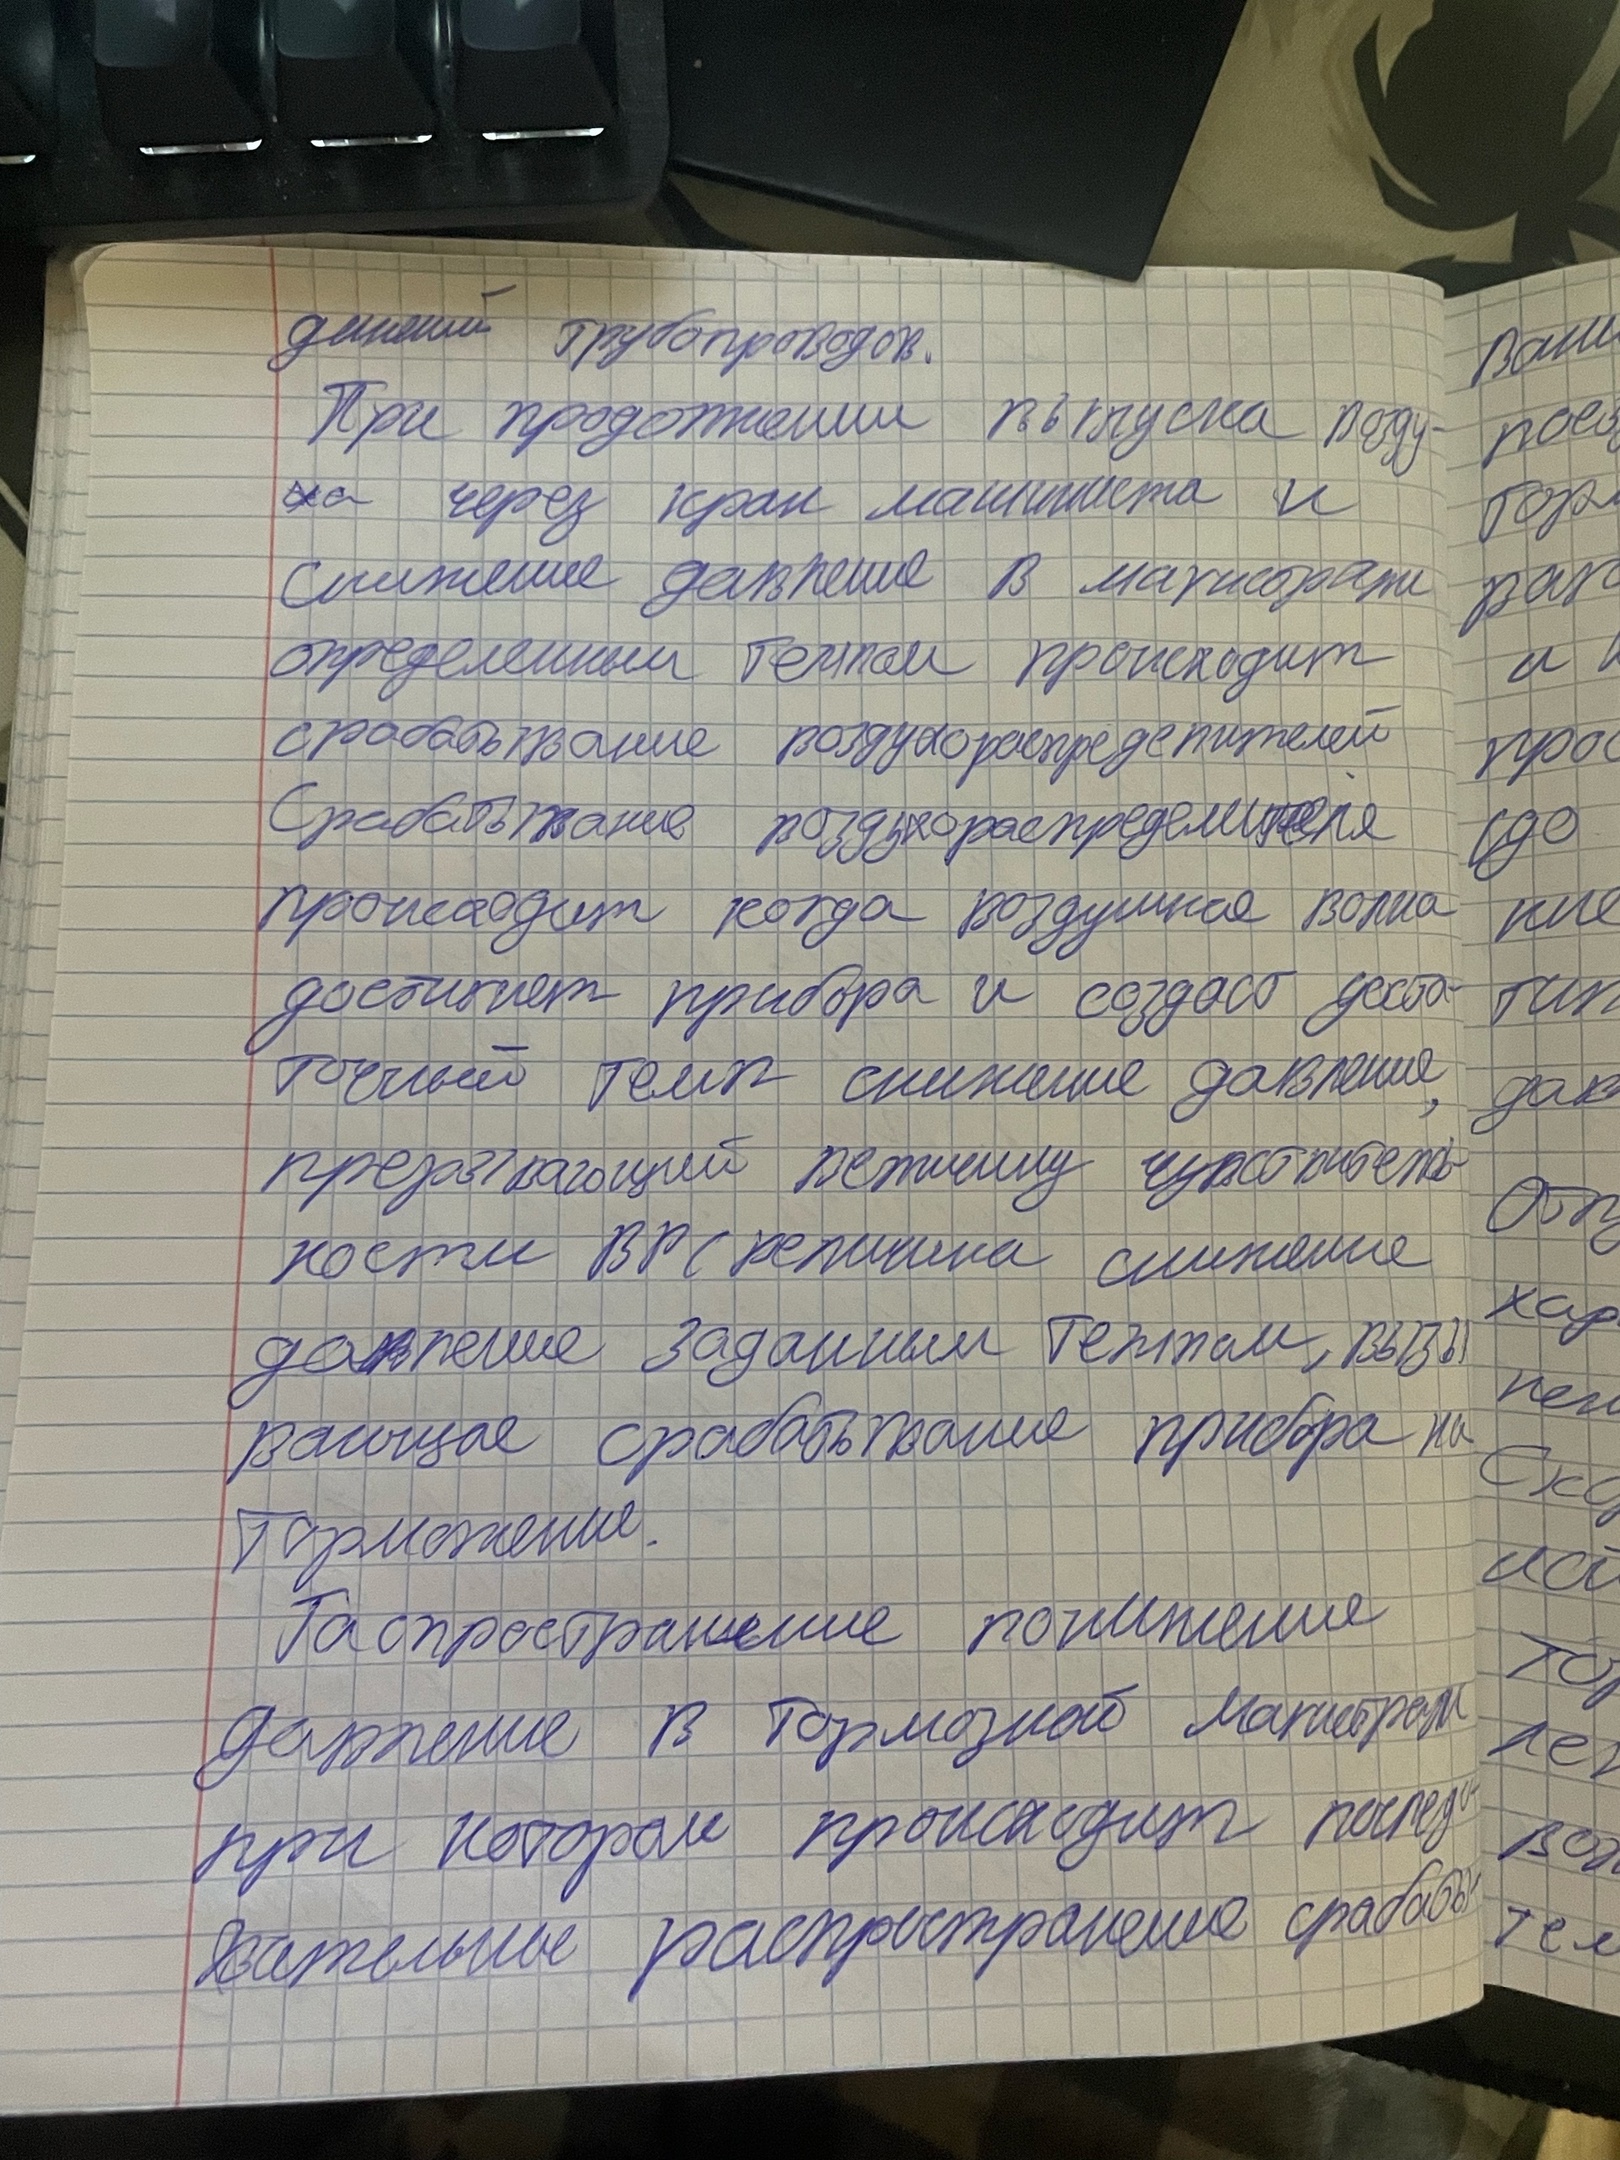 динений трубопроводов.
При продолжении выпуска возду-
ха через кран машиниста и
снижение давление в магистрали
определенным темпом происходит
срабатывание воздухораспределителей
Срабатывание воздухораспределителя
происходит когда воздушная волна
достигнет прибора и создаст доста-
точный темп снижение давление,
превывающий величину чувствитель-
ности ВР (величина снижение
давление заданным темпом, вызы
вающае срабатывание прибора на
торможение.
Распространение понижение
давление в тормозной магистрали
при котором происходит последо-
вательное распространение срабаты-